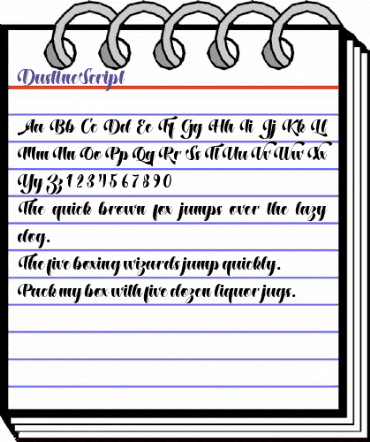 DustineScript
Aa Bb Cc Dd Ee Ff Gg Hh Ii Jj Kk Ll
Mm Nn Oo Pp Qq Rr Ss Tt Uu Vv Ww Xx
Yy Zz 1 2 3 4 5 6 7 8 9 0
The quick brown fox jumps over the lazy
dog.
The five boxing wizards jump quickly.
Pack my box with five dozen liquor jugs.